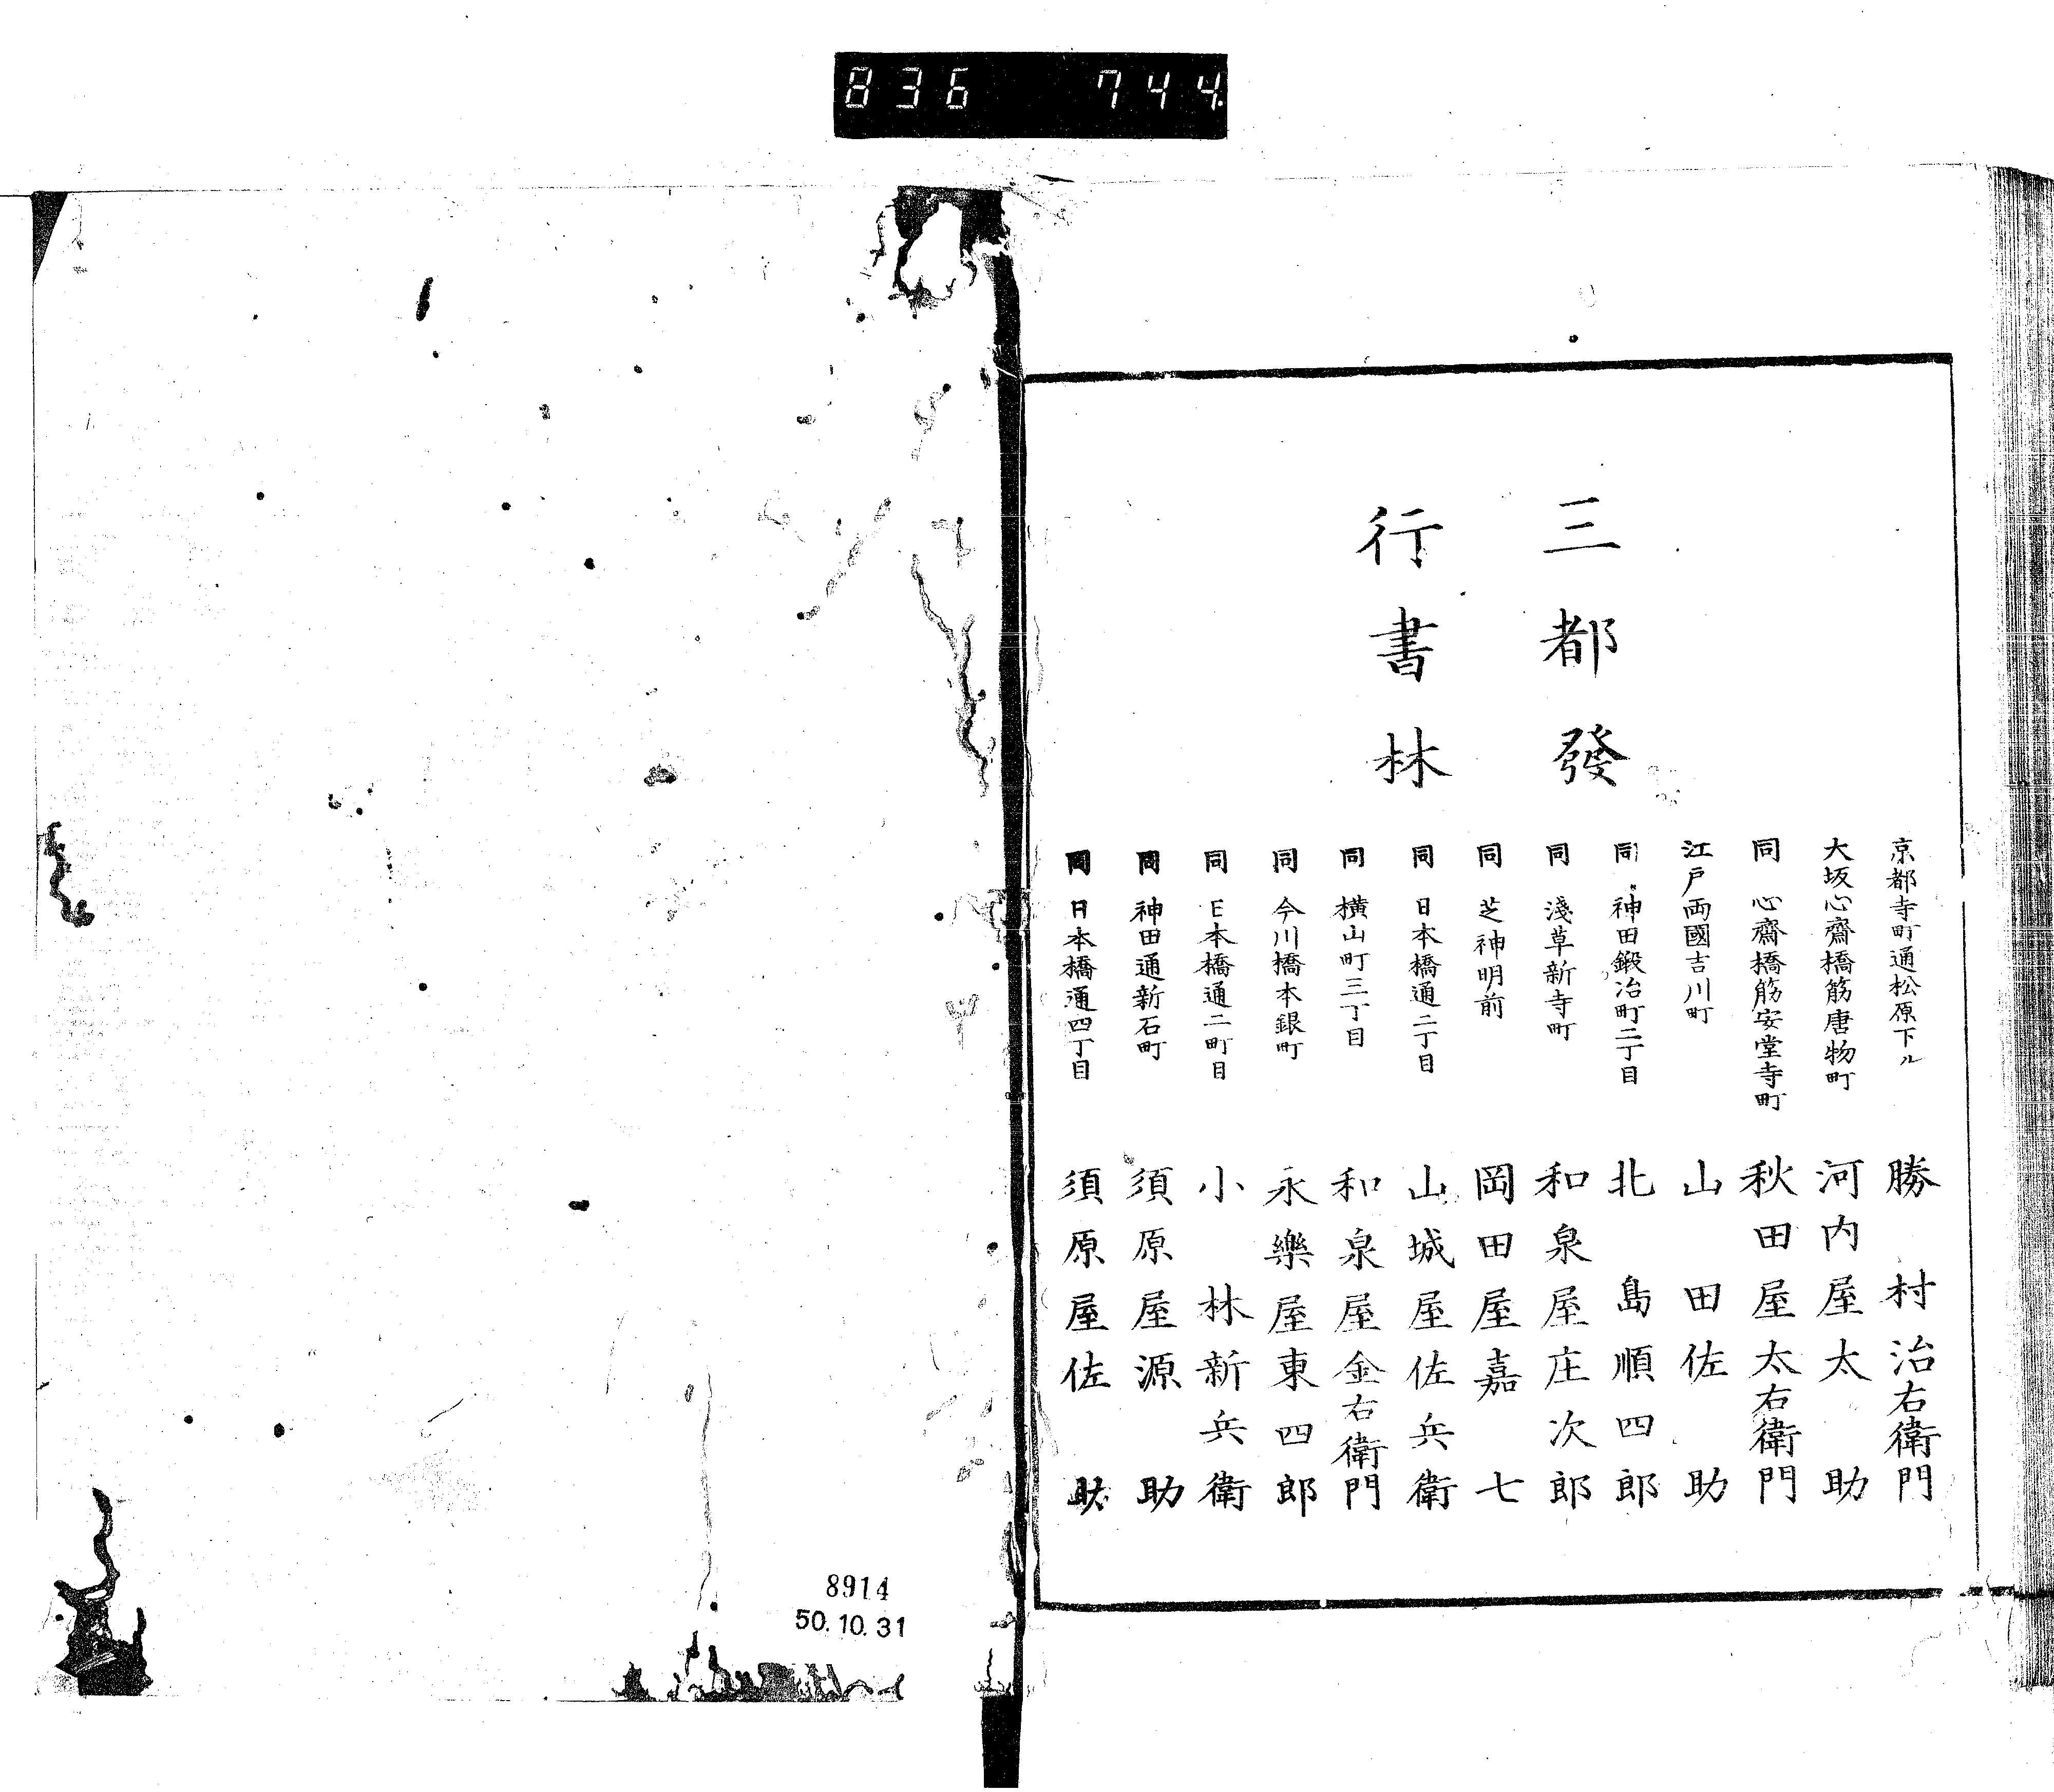 836 744
三都發
行書林
京都寺町通松原下ル 勝村治右衛門
大坂心齋橋筋唐物町 河内屋太助
同 心齋橋筋安堂寺町 秋田屋太右衛門
江戸両國吉川町 山田佐助
同 神田鍛冶町二丁目 北島順四郎
同 淺草新寺町 和泉屋庄次郎
同 芝神明前 岡田屋嘉七
同 日本橋通二丁目 山城屋佐兵衛
同 横山町三丁目 和泉屋金右衛門
同 今川橋本銀町 永樂屋東四郎
同 日本橋通二町目 小林新兵衛
同 神田通新石町 須原屋源助
同 日本橋通四丁目 須原屋佐助
8914
50.10.31